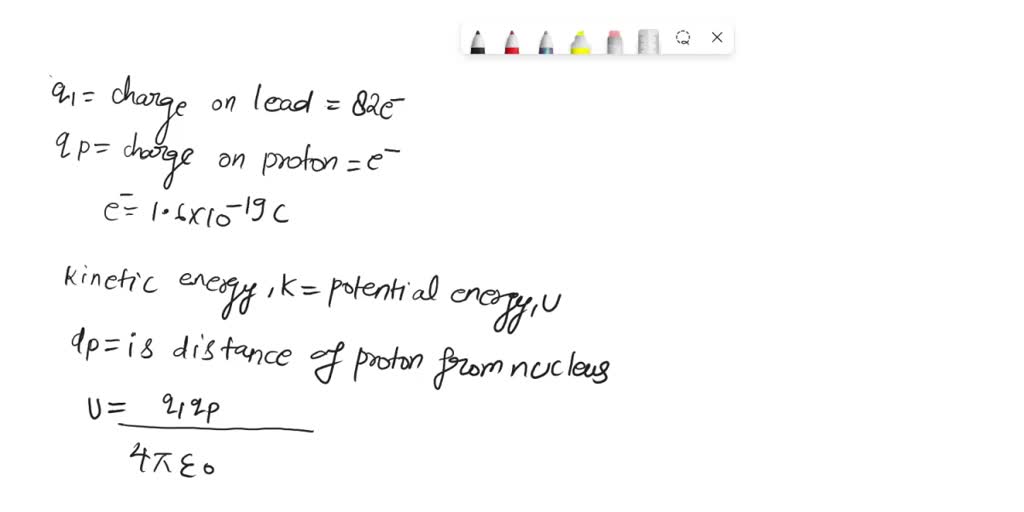 q1 = charge on lead = 82e⁻
qp = charge on proton = e⁻
e⁻ = 1.6×10⁻¹⁹ C
kinetic energy, K = potential energy, U
dp = is distance of proton from nucleus
U = q1qp
4πε0